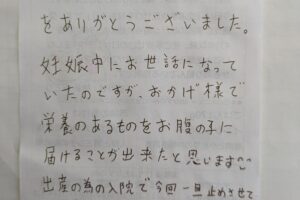 をありがとうございました。
妊娠中にお世話になって
いたのですが、おかげ様で
栄養のあるものをお腹の子に
届けることが出来たと思います
出産の為の入院で今回一旦止めさせて